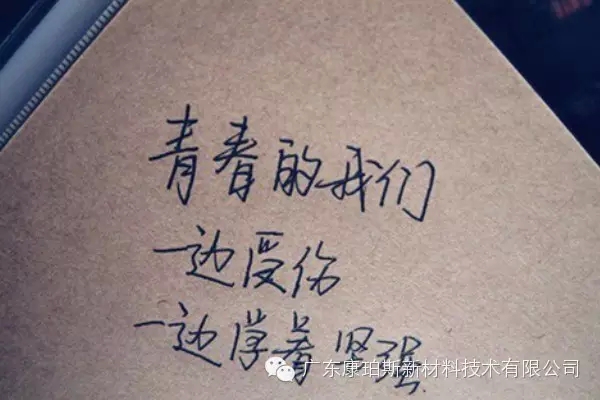 青春的我们
一边受伤
一边学着坚强
广东康珀斯新材料技术有限公司